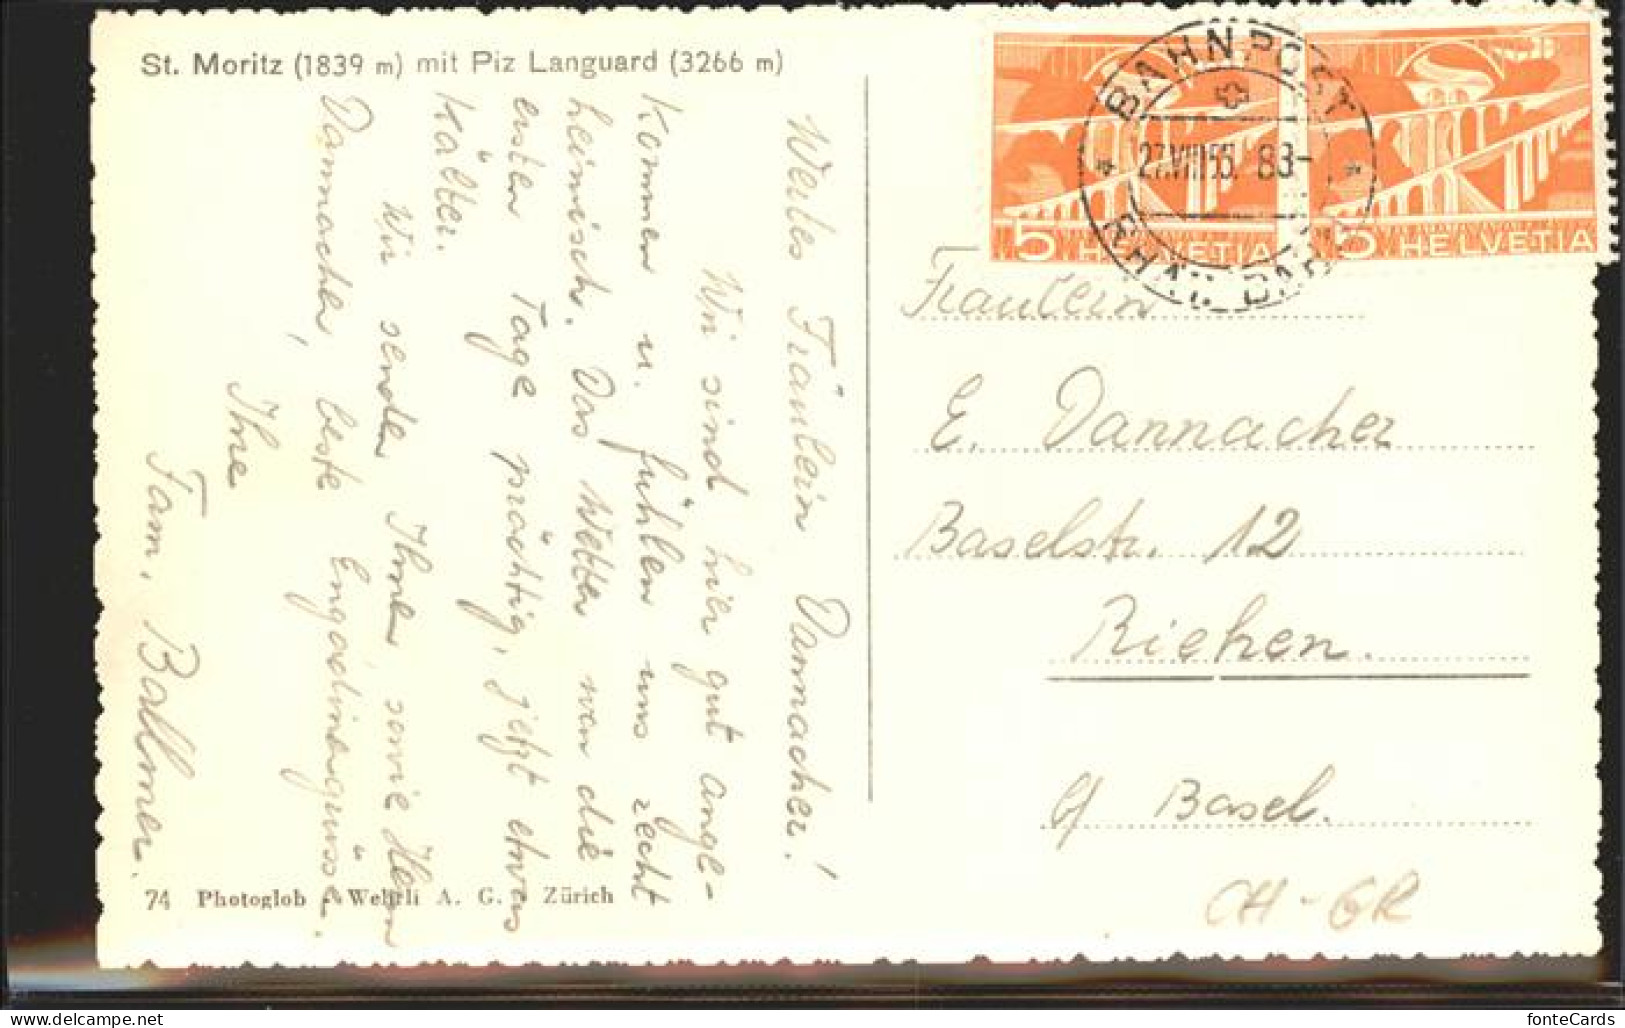 St. Moritz (1839 m) mit Piz Languard (3266 m)
Wertes Fräulein Dannacher!
Wir sind hier gut ange-
kommen u. fühlen uns recht
heimisch. Das Wetter war die
ersten Tage prächtig, jetzt etwas
kälter.
Wir senden Ihnen sowie Herrn
Dannacher, beste Engadinergrüsse.
Ihre
Fam. Ballmer.
74 Photoglob - Wehrli A. G. Zürich
BAHNPOST
27.VIII.55. 83-
RHÄT. BAHN
5 HELVETIA
5 HELVETIA
Fräulein
E. Dannacher
Baselstr. 12
Riehen.
b/ Basel.
CH - GR
fonteCards
www.delcampe.net